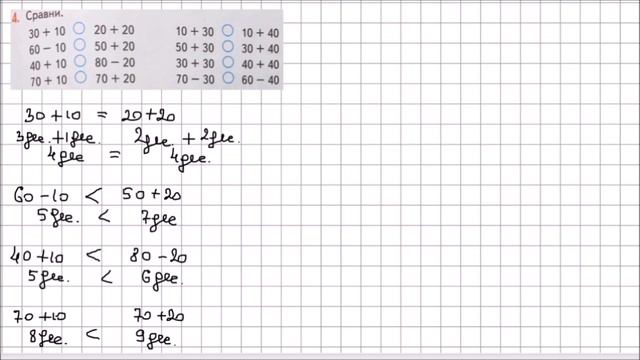 4. Сравни.
30 + 10 ○ 20 + 20 10 + 30 ○ 10 + 40
60 − 10 ○ 50 + 20 50 + 30 ○ 30 + 40
40 + 10 ○ 80 − 20 30 + 30 ○ 40 + 40
70 + 10 ○ 70 + 20 70 − 30 ○ 60 − 40
30 + 10 = 20 + 20
3 дес. + 1 дес. 2 дес. + 2 дес.
4 дес = 4 дес.
60 − 10 < 50 + 20
5 дес. < 7 дес
40 + 10 < 80 − 20
5 дес. < 6 дес.
70 + 10 70 + 20
8 дес. < 9 дес.